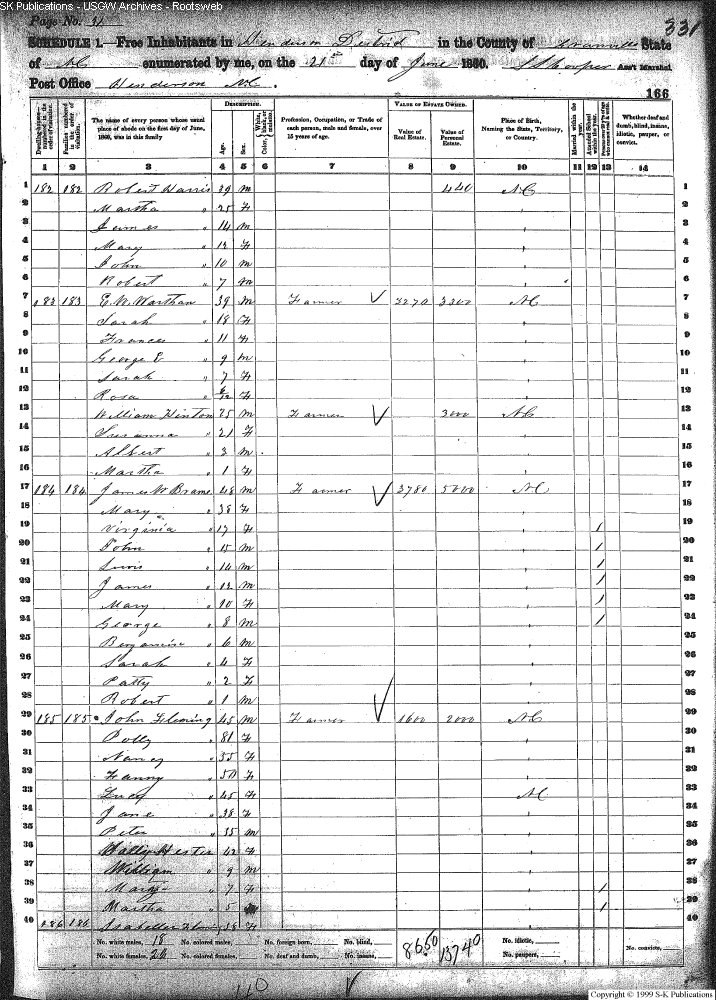 SK Publications - USGW Archives - Rootsweb
Page No. 31
331
SCHEDULE 1.—Free Inhabitants in Henderson District in the County of Granville State
of NC enumerated by me, on the 21st day of June 1860. Ass't Marshal.
Post Office Henderson NC.
166
Dwelling-houses—numbered in the order of visitation.
Families numbered in the order of visitation.
The name of every person whose usual place of abode on the first day of June, 1860, was in this family
DESCRIPTION.
Age.
Sex.
Color, White, black, or mulatto.
Profession, Occupation, or Trade of each person, male and female, over 15 years of age.
VALUE OF ESTATE OWNED.
Value of Real Estate.
Value of Personal Estate.
Place of Birth, Naming the State, Territory, or Country.
Married within the year.
Attended School within the year.
Whether deaf and dumb, blind, insane, idiotic, pauper, or convict.
1 2 3 4 5 6 7 8 9 10 11 12 13 14
1 182 182 Robert Harris 39 m 440 NC 1
2 Martha " 25 F 2
3 James " 14 m 3
4 Mary " 12 F 4
5 John " 10 m 5
6 Robert " 7 m 6
7 183 183 E. W. Worthan 39 m Farmer 3270 3300 NC 7
8 Sarah " 18 F 8
9 Frances " 11 F 9
10 George E " 9 m 10
11 Sarah " 7 F 11
12 Rosa " 6/12 F 12
13 William Hinton 25 m Farmer 3000 NC 13
14 Susanna " 21 F 14
15 Albert " 3 m 15
16 Martha " 1 F 16
17 184 184 James W Brame 48 m Farmer 3780 5000 NC 17
18 Mary " 38 F 18
19 Virginia " 17 F / 19
20 John " 15 m / 20
21 Lewis " 14 m / 21
22 James " 12 m / 22
23 Mary " 10 F / 23
24 George " 8 m / 24
25 " 6 m 25
26 Sarah " 4 F 26
27 Patty " 2 F 27
28 Robert " 1 m 28
29 185 185 John Fleming " 45 m Farmer 1600 2000 NC 29
30 Polly " 81 F 30
31 Nancy " 55 F 31
32 Fanny " 50 F 32
33 Lucy " 45 F NC 33
34 Jane " 38 F 34
35 Peter " 35 m 35
36 Hester 42 F 36
37 William " 9 m 37
38 Mary " 7 F / 38
39 Martha " 5 / 39
40 186 186 Isabella 38 F 40
No. white males, 18 No. colored males, No. foreign born, No. blind, 8650 13740 No. idiotic,
No. white females, 22 No. colored females, No. deaf and dumb, No. insane, No. paupers, No. convicts,
Copyright © 1999 S-K Publications